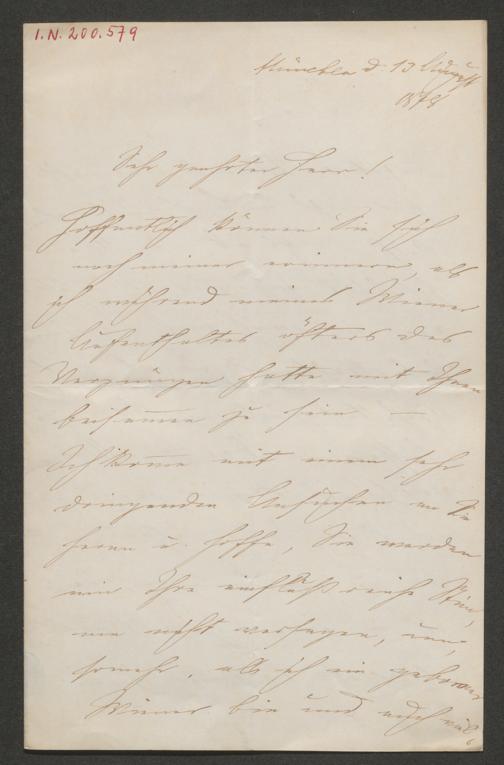 I.N. 200.579
München d. 13 August
1878
Sehr geehrter Herr!
Hoffentlich können Sie sich
noch meiner erinnern, als
ich während meines Wiener
Aufenthaltes öfters das
Vergnügen hatte mit Ihnen
beisammen zu sein —
Ich komme mit einem sehr
dringenden Ansuchen an Sie
heran u. hoffe, Sie werden
mir Ihre einflußreiche Stim,
me nicht versagen, um,
somehr, als ich ein geborner
Wiener bin und mich